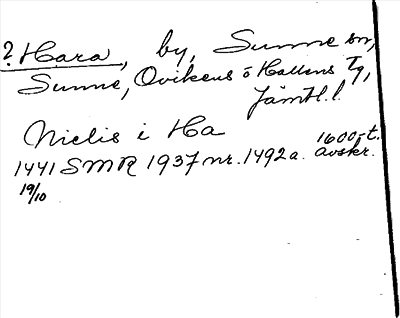 ? Hara, by, Sunne sn,
Sunne, Ovikens o Hallens Tg,
Jämtl.l.
Niclis i Ha
1441 SMR 1937 nr. 1492a. 1600-t. avskr.
19/10